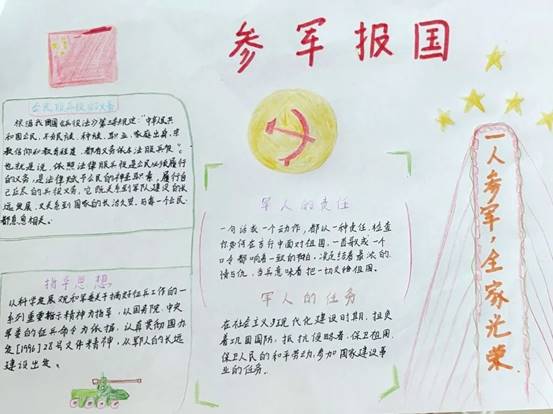 参军报国
公民服兵役的义务
依据我国《兵役法》第三条规定:“中华人民共
和国公民,不分民族、种族、职业、家庭出身、宗
教信仰和教育程度,都有义务依法服兵役。”
也就是说,依照法律服兵役是公民必须履行
的义务,是法律赋予公民的神圣职责,履行自
己应尽的兵役义务,它既关系到军队建设的长
远发展,又关系到国家的长治久安,与每一个公民
都息息相关。
指导思想
从科学发展观和军委关于搞好征兵工作的一
系列重要指示精神为指导,以国务院、中央
军委的征兵命令为依据,认真贯彻国办
发[1996]28号文件精神,从部队的长远
建设出发。
军人的责任
一句话或一个动作,都从一种责任,检查
你如何在言行中面对祖国。一首歌或一个
口令都响着一致的胸怀,决定结着最浓的
情与仇,当兵意味着把一切交给祖国。
军人的任务
在社会主义现代化建设时期,担负
着巩固国防,抵抗侵略者,保卫祖国,
保卫人民的和平劳动,参加国家建设事
业的任务。
一人参军,全家光荣